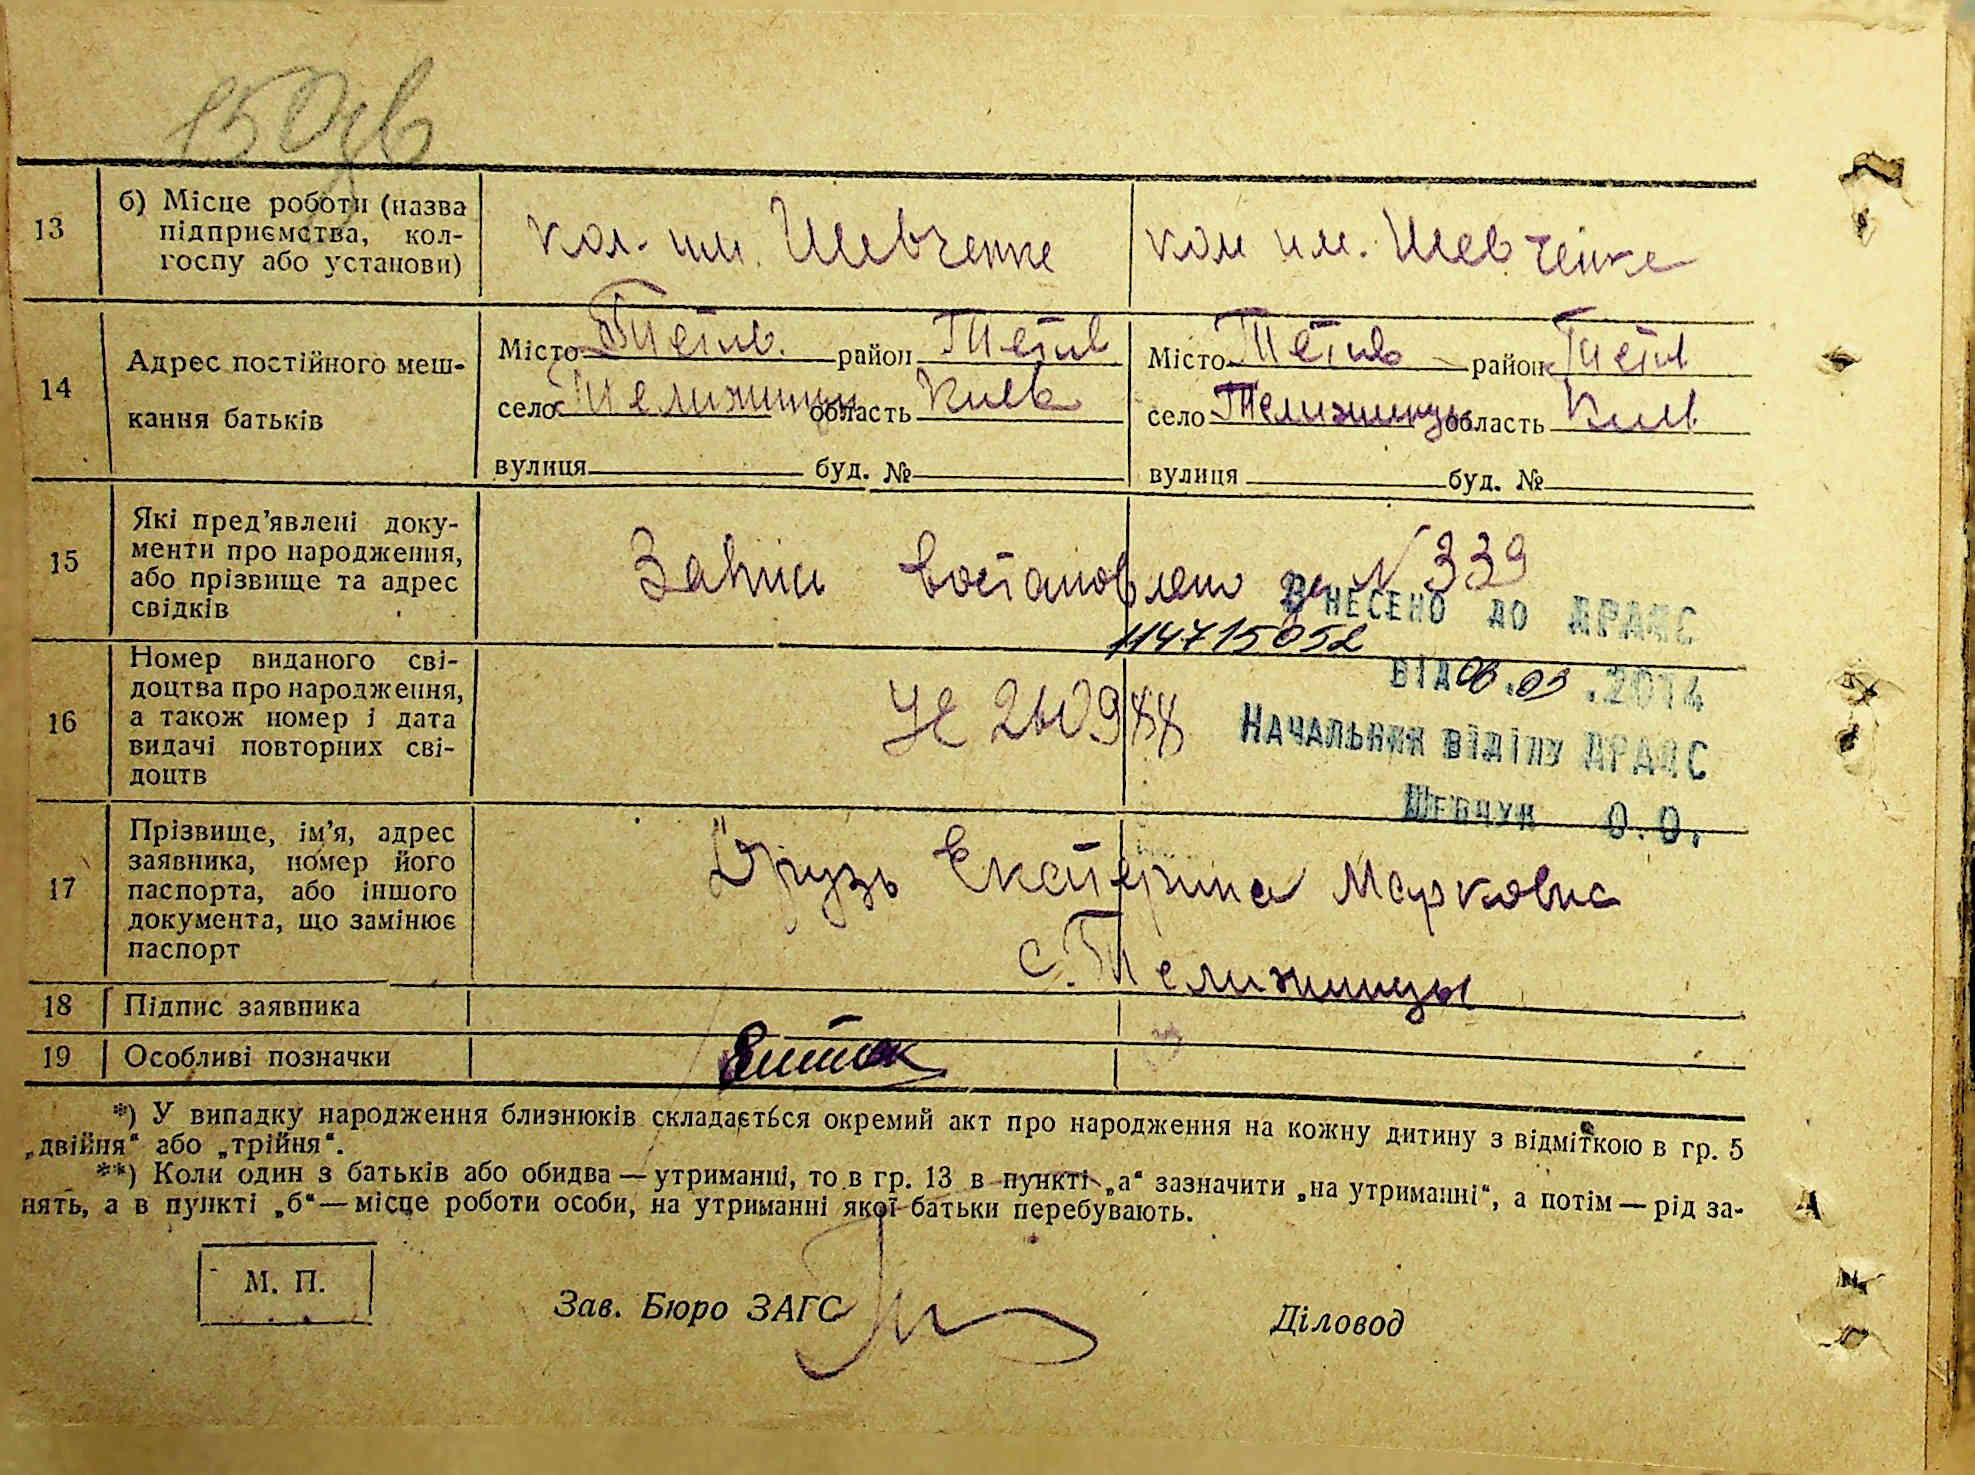 150зв
13
б) Місце роботи (назва
підприємства, кол-
госпу або установи)
кол. им. Шевченке
кол им. Шевченке
14
Адрес постійного меш-
кання батьків
Місто Тетив. район Тетив
село Тележинцы область Киев
вулиця буд. №
Місто Тетив район Тетив
село Тележинцы область Киев
вулиця буд. №
15
Які пред'явлені доку-
менти про народження,
або прізвище та адрес
свідків
Запись востановлено № 339
Внесено до ДРАЦС
114715052
від 06.03.2014
Начальник відділу ДРАЦС
Шевчук О.О.
16
Номер виданого сві-
доцтва про народження,
а також номер і дата
видачі повторних сві-
доцтв
17
Прізвище, ім'я, адрес
заявника, номер його
паспорта, або іншого
документа, що замінює
паспорт
Друзь Екатерина Марковна
с. Тележинцы
18
Підпис заявника
19
Особливі позначки
*) У випадку народження близнюків складається окремий акт про народження на кожну дитину з відміткою в гр. 5
„двійня“ або „трійня“.
**) Коли один з батьків або обидва — утриманці, то в гр. 13 в пункті „а“ зазначити „на утриманні“, а потім — рід за-
нять, а в пункті „б“ — місце роботи особи, на утриманні якої батьки перебувають.
М. П.
Зав. Бюро ЗАГС
Діловод